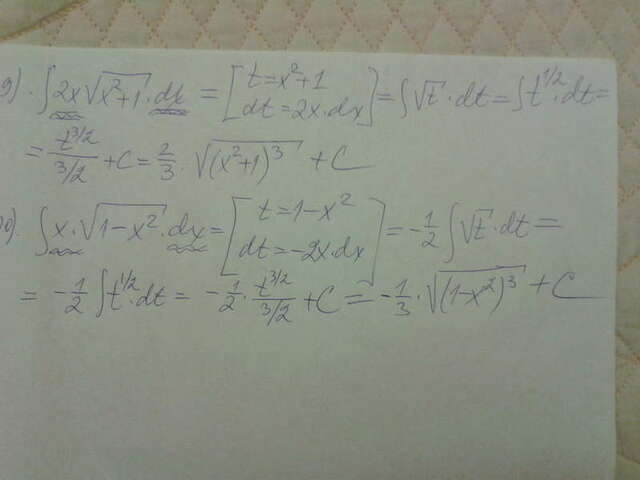 9). ∫2x√(x²+1)·dx = [t=x²+1 dt=2x·dx] = ∫√t·dt = ∫t^(1/2)·dt =
= t^(3/2)/(3/2) + C = 2/3·√((x²+1)³) + C
10). ∫x·√(1-x²)·dx = [t=1-x² dt=-2x·dx] = -1/2∫√t·dt =
= -1/2∫t^(1/2)·dt = -1/2·t^(3/2)/(3/2) + C = -1/3·√((1-x²)³) + C